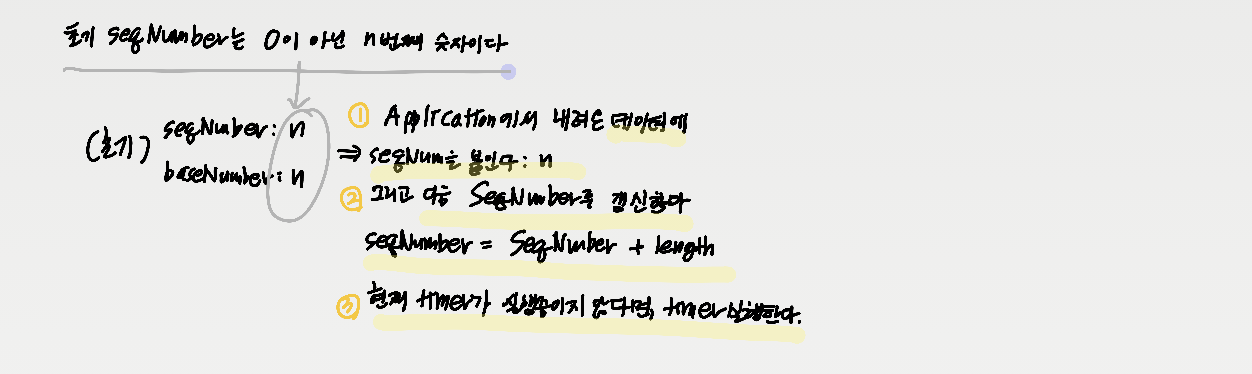 초기 seqNumber는 0이 아닌 n번째 숫자이다
(초기)
seqNumber: n
baseNumber: n
① Application에서 내려온 데이터에
⇒ seqNum을 붙인다: n
② 그리고 다음 SeqNumber를 갱신한다
seqNumber = SeqNumber + length
③ 현재 timer가 실행중이지 않다면, timer실행한다.